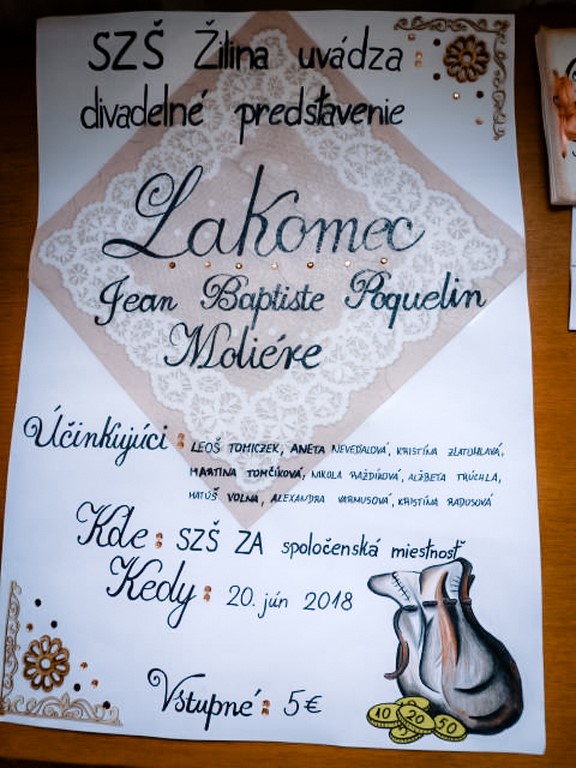 SZŠ Žilina uvádza
divadelné predstavenie
Lakomec
Jean Baptiste Poquelin
Moliére
Účinkujúci: LEOŠ TOMICZEK, ANETA NEVEĎALOVÁ, KRISTÍNA ZLATOHLAVÁ,
MARTINA TOMČÍKOVÁ, NIKOLA RAŽDÍKOVÁ, ALŽBETA TRÚCHLA,
MATÚŠ VOLNA, ALEXANDRA VARMUSOVÁ, KRISTÍNA RADUSOVÁ
Kde: SZŠ ZA spoločenská miestnosť
Kedy: 20. jún 2018
Vstupné: 5€
10 20 50
5